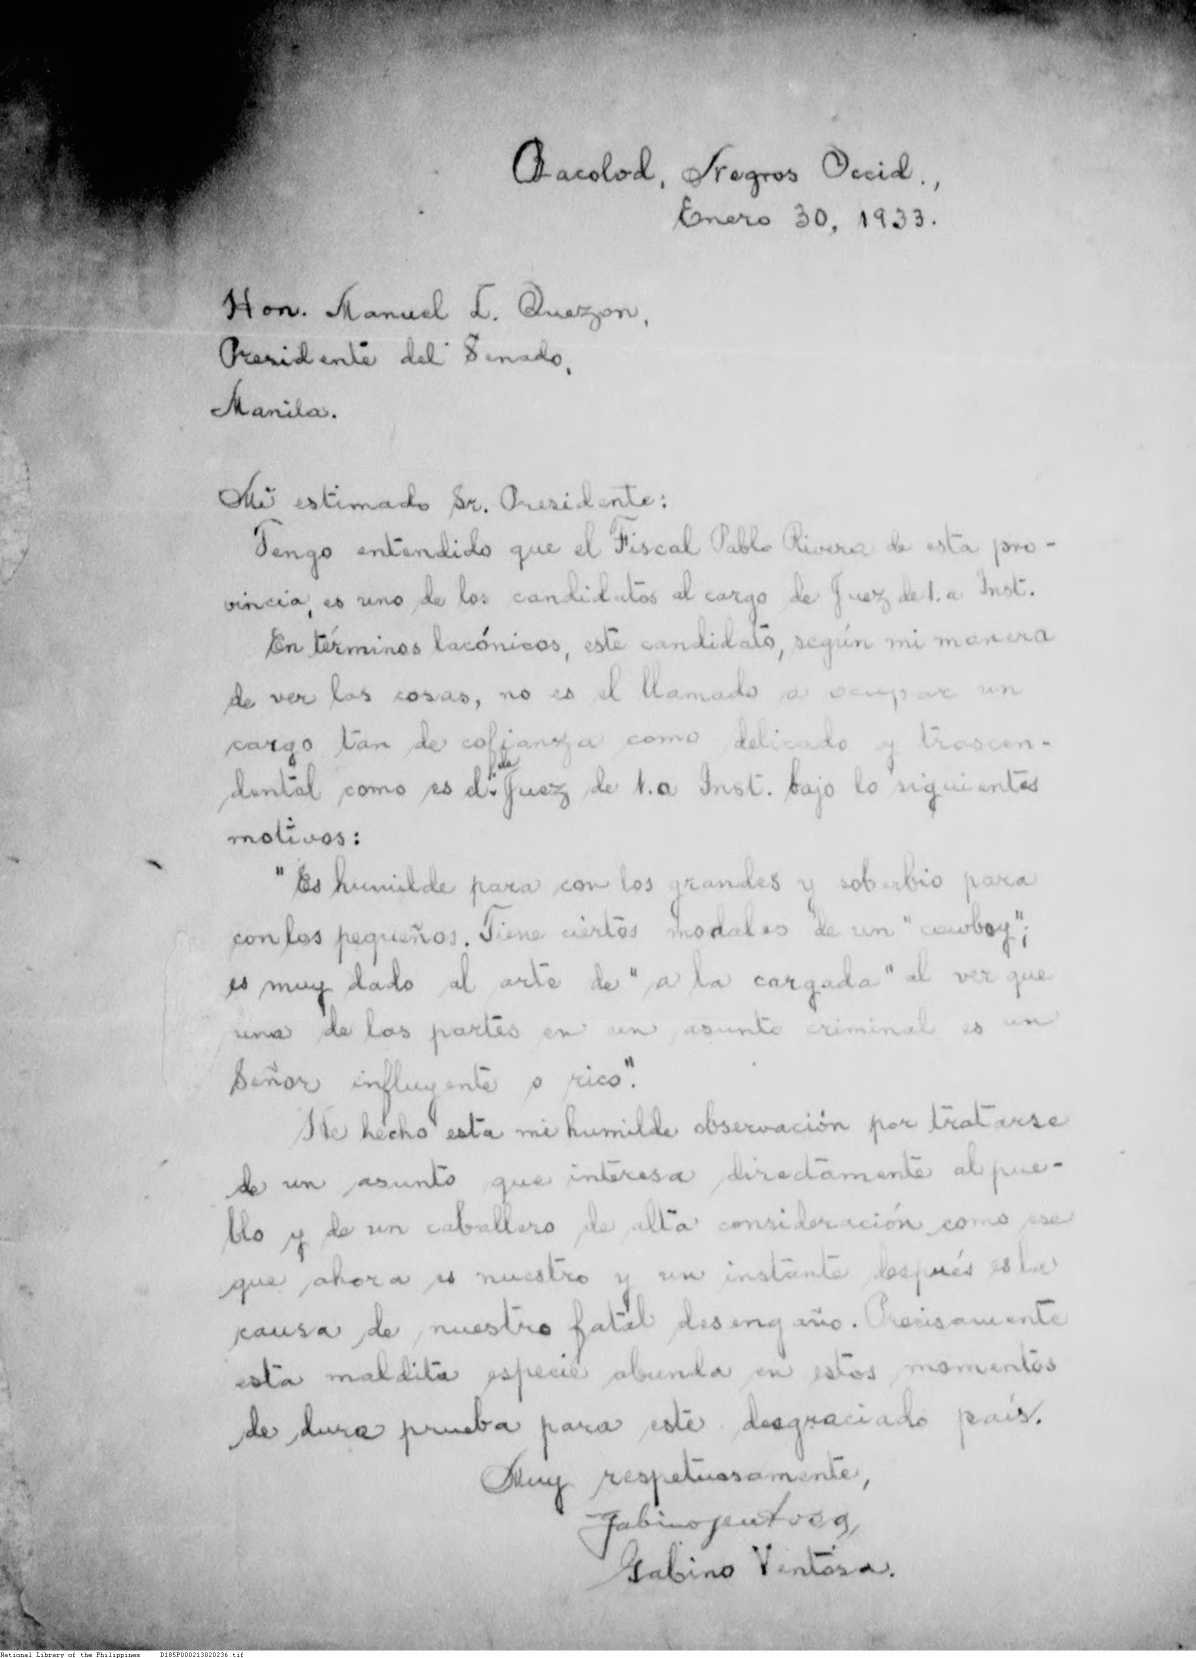 Bacolod, Negros Occid.,
Enero 30, 1933.
Hon. Manuel L. Quezon,
Presidente del Senado,
Manila.
Mi estimado Sr. Presidente:
Tengo entendido que el Fiscal Pablo Rivera de esta pro-
vincia, es uno de los candidatos al cargo de Juez de 1.a Inst.
En términos lacónicos, este candidato, según mi manera
de ver las cosas, no es el llamado a ocupar un
cargo tan de cofianza como delicado y trascen-
dental como es el de Juez de 1.a Inst. bajo lo siguientes
motivos:
"Es humilde para con los grandes y soberbio para
con los pequeños. Tiene ciertos modales de un "cowboy";
es muy dado al arte de "a la cargada" al ver que
una de las partes en un asunto criminal es un
Señor influyente o rico".
He hecho esta mi humilde observación por tratarse
de un asunto que interesa directamente al pue-
blo y de un caballero de alta consideración como ese
que ahora es nuestro y un instante después es la
causa de nuestro fatal desengaño. Precisamente
esta maldita especie abunda en estos momentos
de dura prueba para este desgraciado país.
Muy respetuosamente,
Gabino Ventosa
Gabino Ventosa.
National Library of the Philippines D185P000213020236.tif